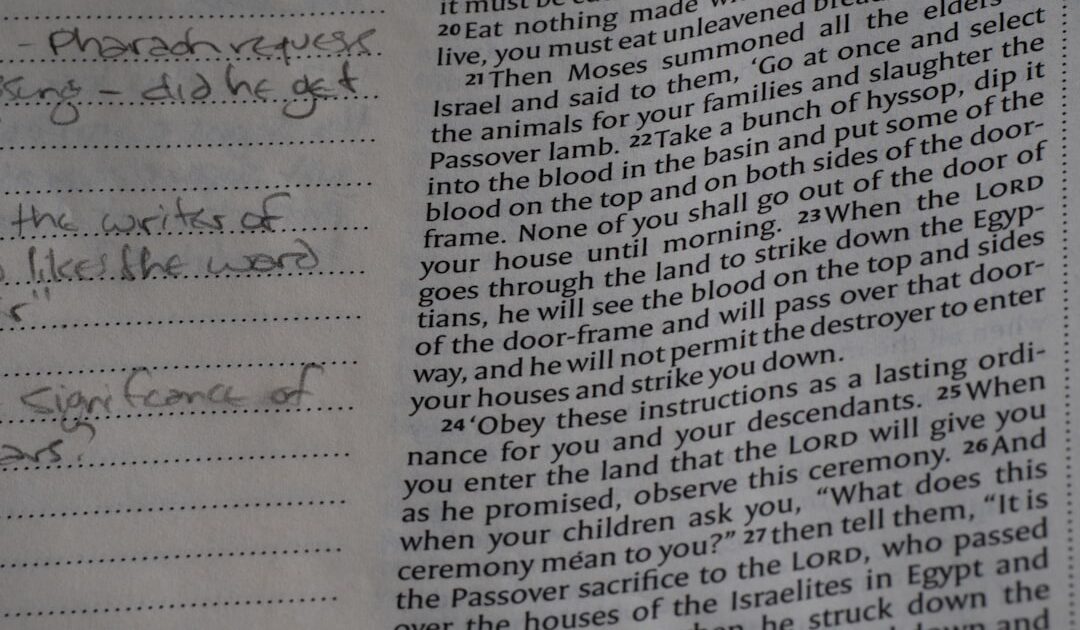 - Pharaoh request
- did he get
the writer of
likes the word
significance of
it must be
20 Eat nothing made
live, you must eat unleavened bread
21 Then Moses summoned all the elders
Israel and said to them, ‘Go at once and select
the animals for your families and slaughter the
Passover lamb. 22 Take a bunch of hyssop, dip it
into the blood in the basin and put some of the
blood on the top and on both sides of the door-
frame. None of you shall go out of the door of
your house until morning. 23 When the LORD
goes through the land to strike down the Egyp-
tians, he will see the blood on the top and sides
of the door-frame and will pass over that door-
way, and he will not permit the destroyer to enter
your houses and strike you down.
24 ‘Obey these instructions as a lasting ordi-
nance for you and your descendants. 25 When
you enter the land that the LORD will give you
as he promised, observe this ceremony. 26 And
when your children ask you, “What does this
ceremony mean to you?” 27 then tell them, “It is
the Passover sacrifice to the LORD, who passed
over the houses of the Israelites in Egypt and
he struck down the
and